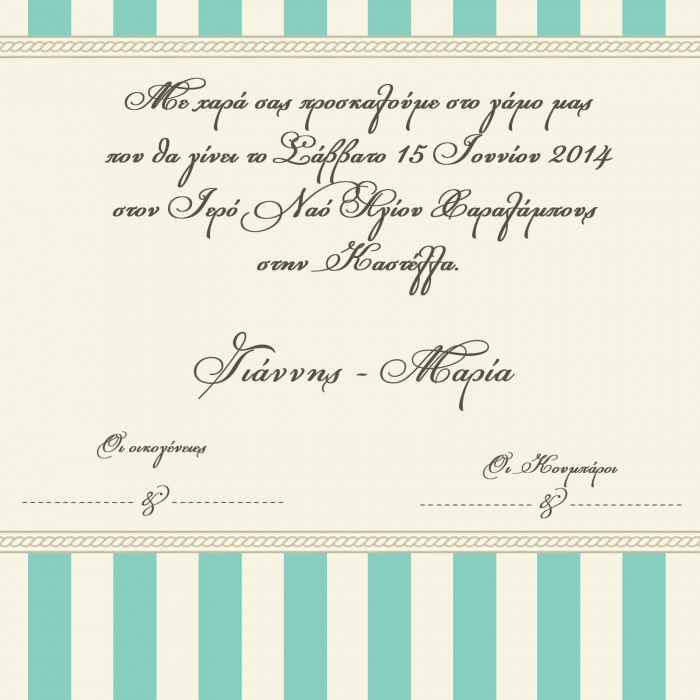 Με χαρά σας προσκαλούμε στο γάμο μας
που θα γίνει το Σάββατο 15 Ιουνίου 2014
στον Ιερό Ναό Αγίου Χαραλάμπους
στην Καστέλλα.
Γιάννης - Μαρία
Οι οικογένειες
------------- & -------------
Οι Κουμπάροι
------------- & -------------